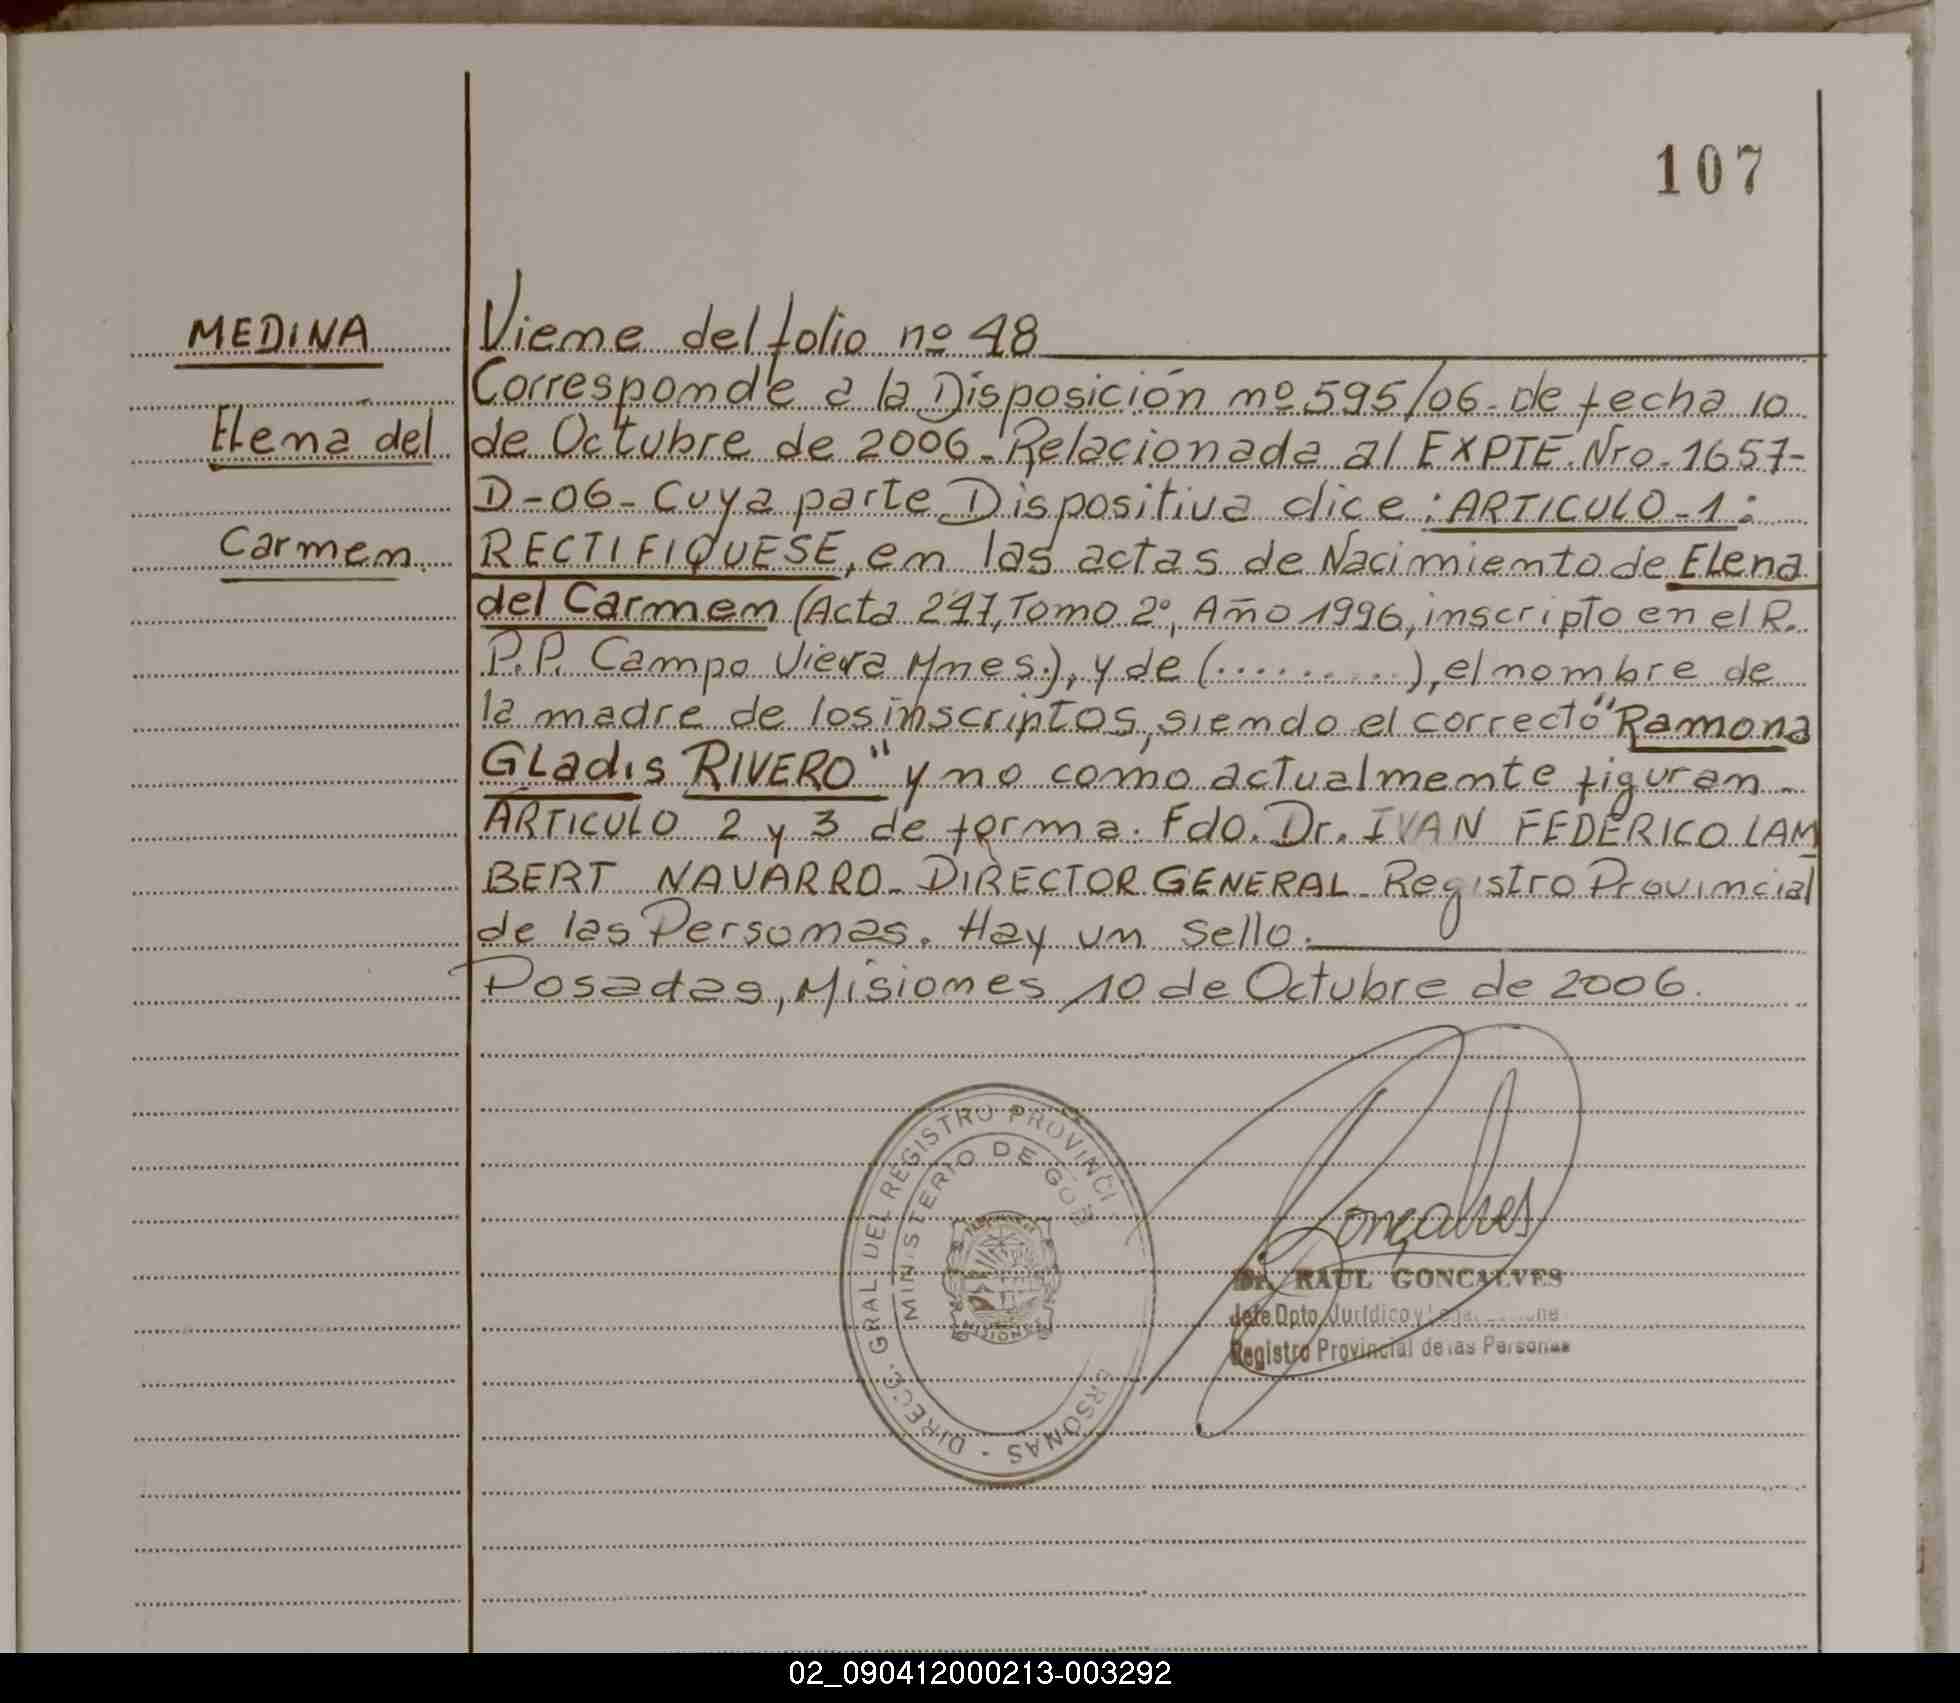 107
MEDINA
Elena del
Carmen.
Viene del folio nº 48
Corresponde a la Disposición nº 595/06- de fecha 10
de Octubre de 2006- Relacionada al EXPTE. Nro. 1657-
D-06- Cuya parte Dispositiva dice: ARTICULO-1:
RECTIFIQUESE, en las actas de Nacimiento de Elena
del Carmen (Acta 247, Tomo 2º, Año 1996, inscripto en el R.
P.P. Campo Viera Mnes.), y de (..........), el nombre de
la madre de los inscriptos, siendo el correcto "Ramona
Gladis RIVERO" y no como actualmente figuran-
ARTICULO 2 y 3 de forma. Fdo. Dr. IVAN FEDERICO LAM
BERT NAVARRO- DIRECTOR GENERAL- Registro Provincial
de las Personas. Hay un sello.
Posadas, Misiones, 10 de Octubre de 2006.
DIRECC. GRAL DEL REGISTRO PROVINCI ERSONAS -
MINISTERIO DE GOB
MISIONES
Gonçalves
Dr. RAUL GONCALVES
Jefe Dpto. Jurídico y
Registro Provincial de las Personas
02_090412000213-003292